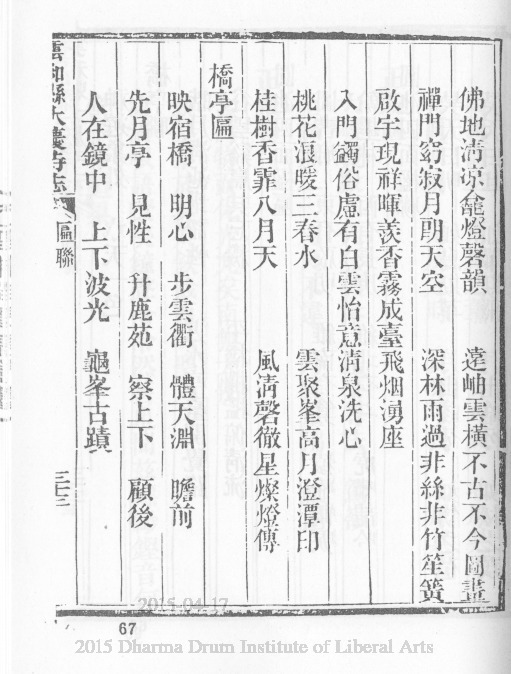 佛地清涼龕燈磬韻　遠岫雲橫不古不今圖畫
禪門窈寂月朗天空　深林雨過非絲非竹笙簧
啟宇現祥暉羨香霧成臺飛烟湧座
入門蠲俗慮有白雲怡意清泉洗心
桃花浪暖三春水　雲聚峯高月澄潭印
桂樹香霏八月天　風清磬徹星燦燈傳
橋亭匾
映宿橋　明心　步雲衢　體天淵　瞻前
先月亭　見性　升鹿苑　察上下　顧後
人在鏡中　上下波光　龜峯古蹟
雲和縣大慶寺志　匾聯　三十三
2015-04-17
67
2015 Dharma Drum Institute of Liberal Arts